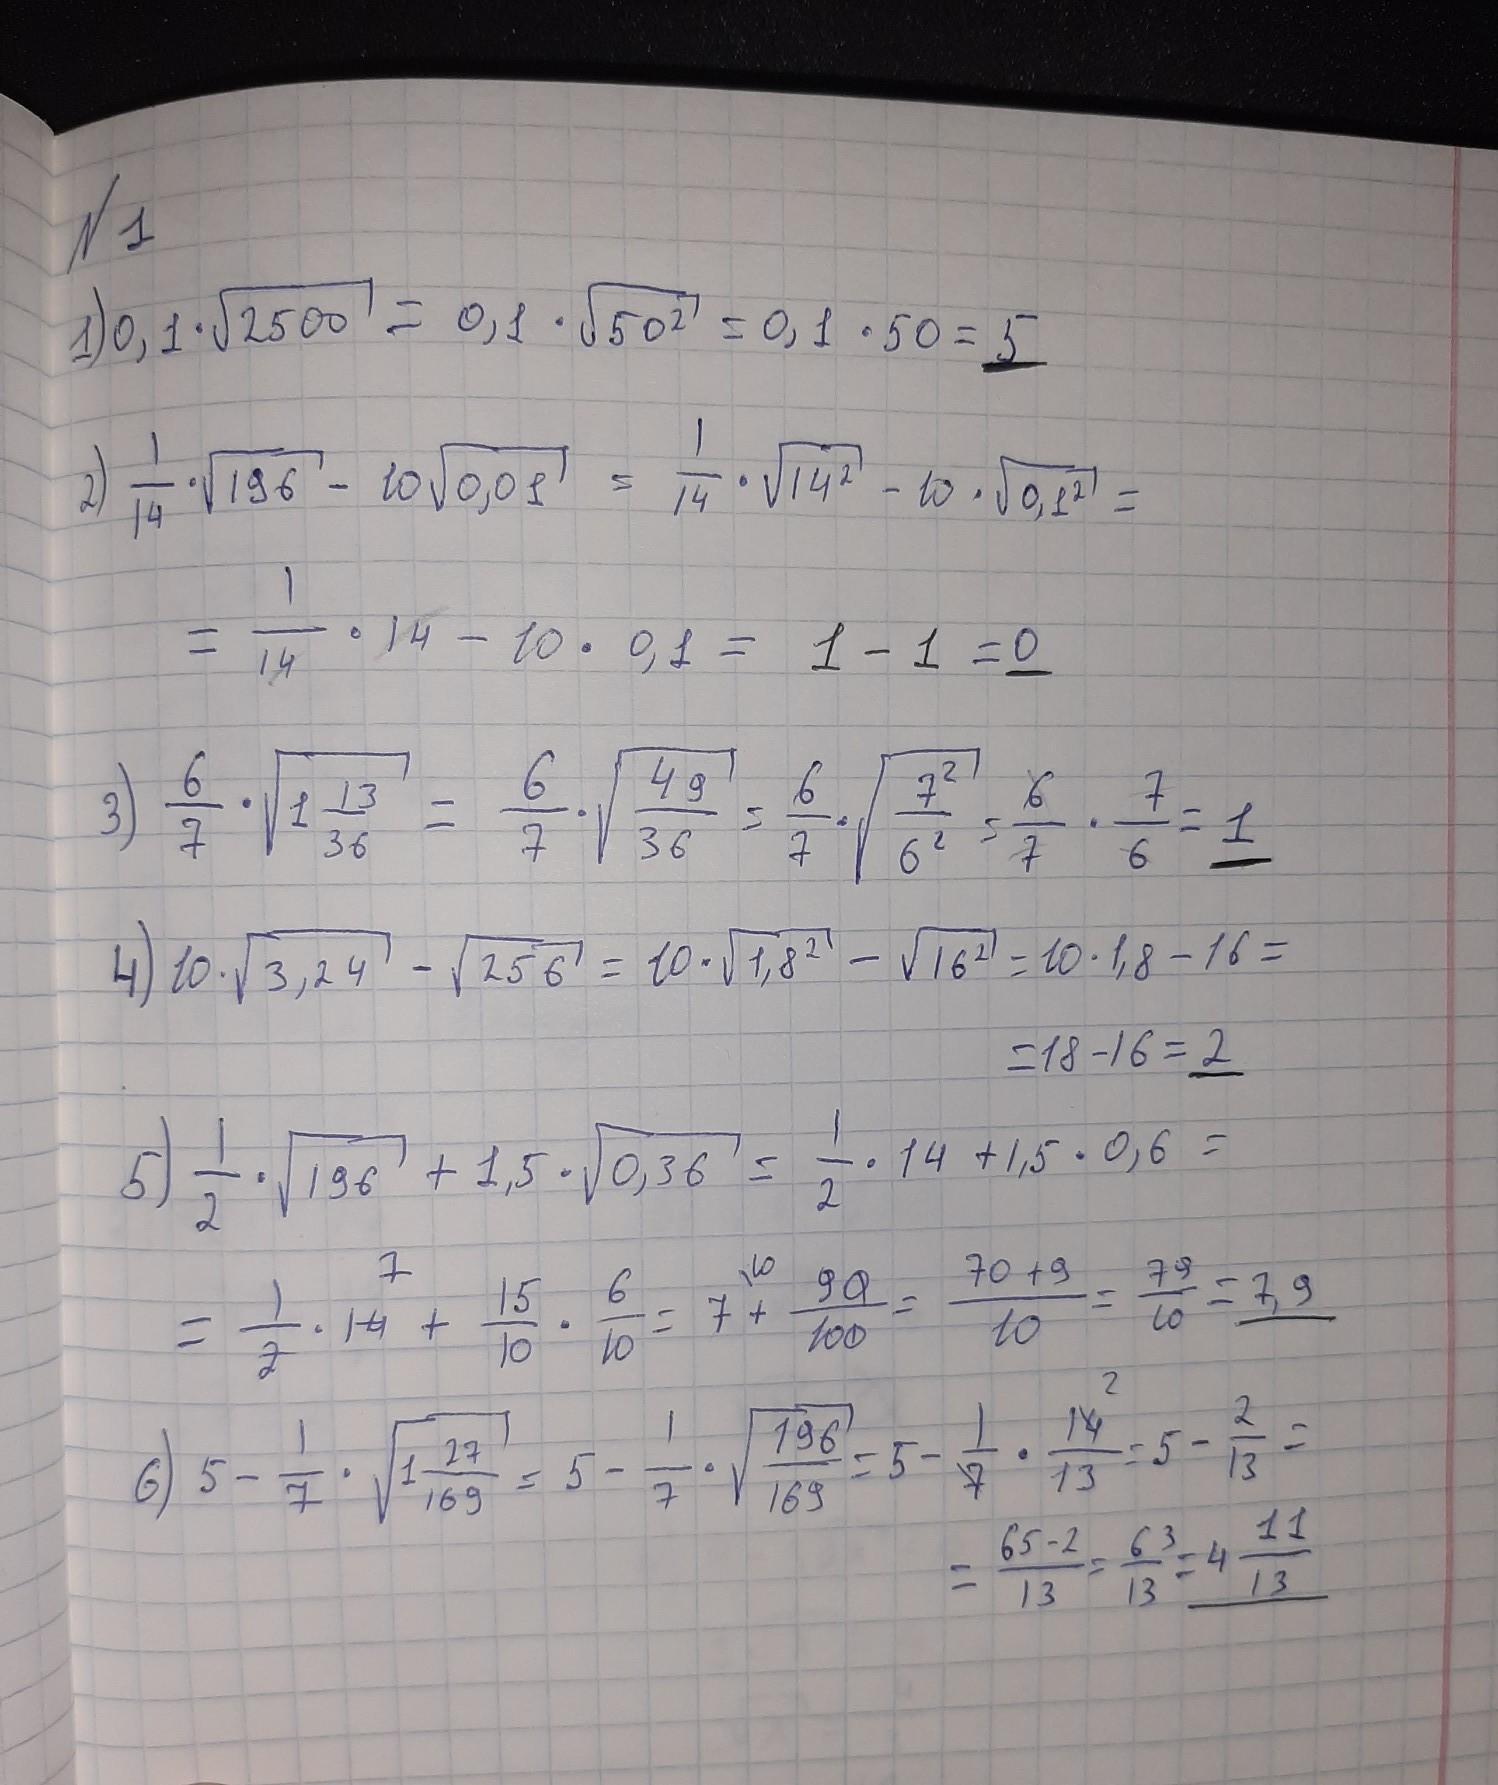 №1
1) 0,1·√2500 = 0,1·√50² = 0,1·50 = 5
2) 1/14·√196 - 10√0,01 = 1/14·√14² - 10·√0,1² =
= 1/14·14 - 10·0,1 = 1 - 1 = 0
3) 6/7·√1 13/36 = 6/7·√49/36 = 6/7·√7²/6² = 6/7·7/6 = 1
4) 10·√3,24 - √256 = 10·√1,8² - √16² = 10·1,8 - 16 =
= 18 - 16 = 2
5) 1/2·√196 + 1,5·√0,36 = 1/2·14 + 1,5·0,6 =
= 1/2·14 7 + 15/10·6/10 = 7 \10 + 90/100 = 70+9/10 = 79/10 = 7,9
6) 5 - 1/7·√1 27/169 = 5 - 1/7·√196/169 = 5 - 1/7·14 2/13 = 5 - 2/13 =
= 65-2/13 = 63/13 = 4 11/13